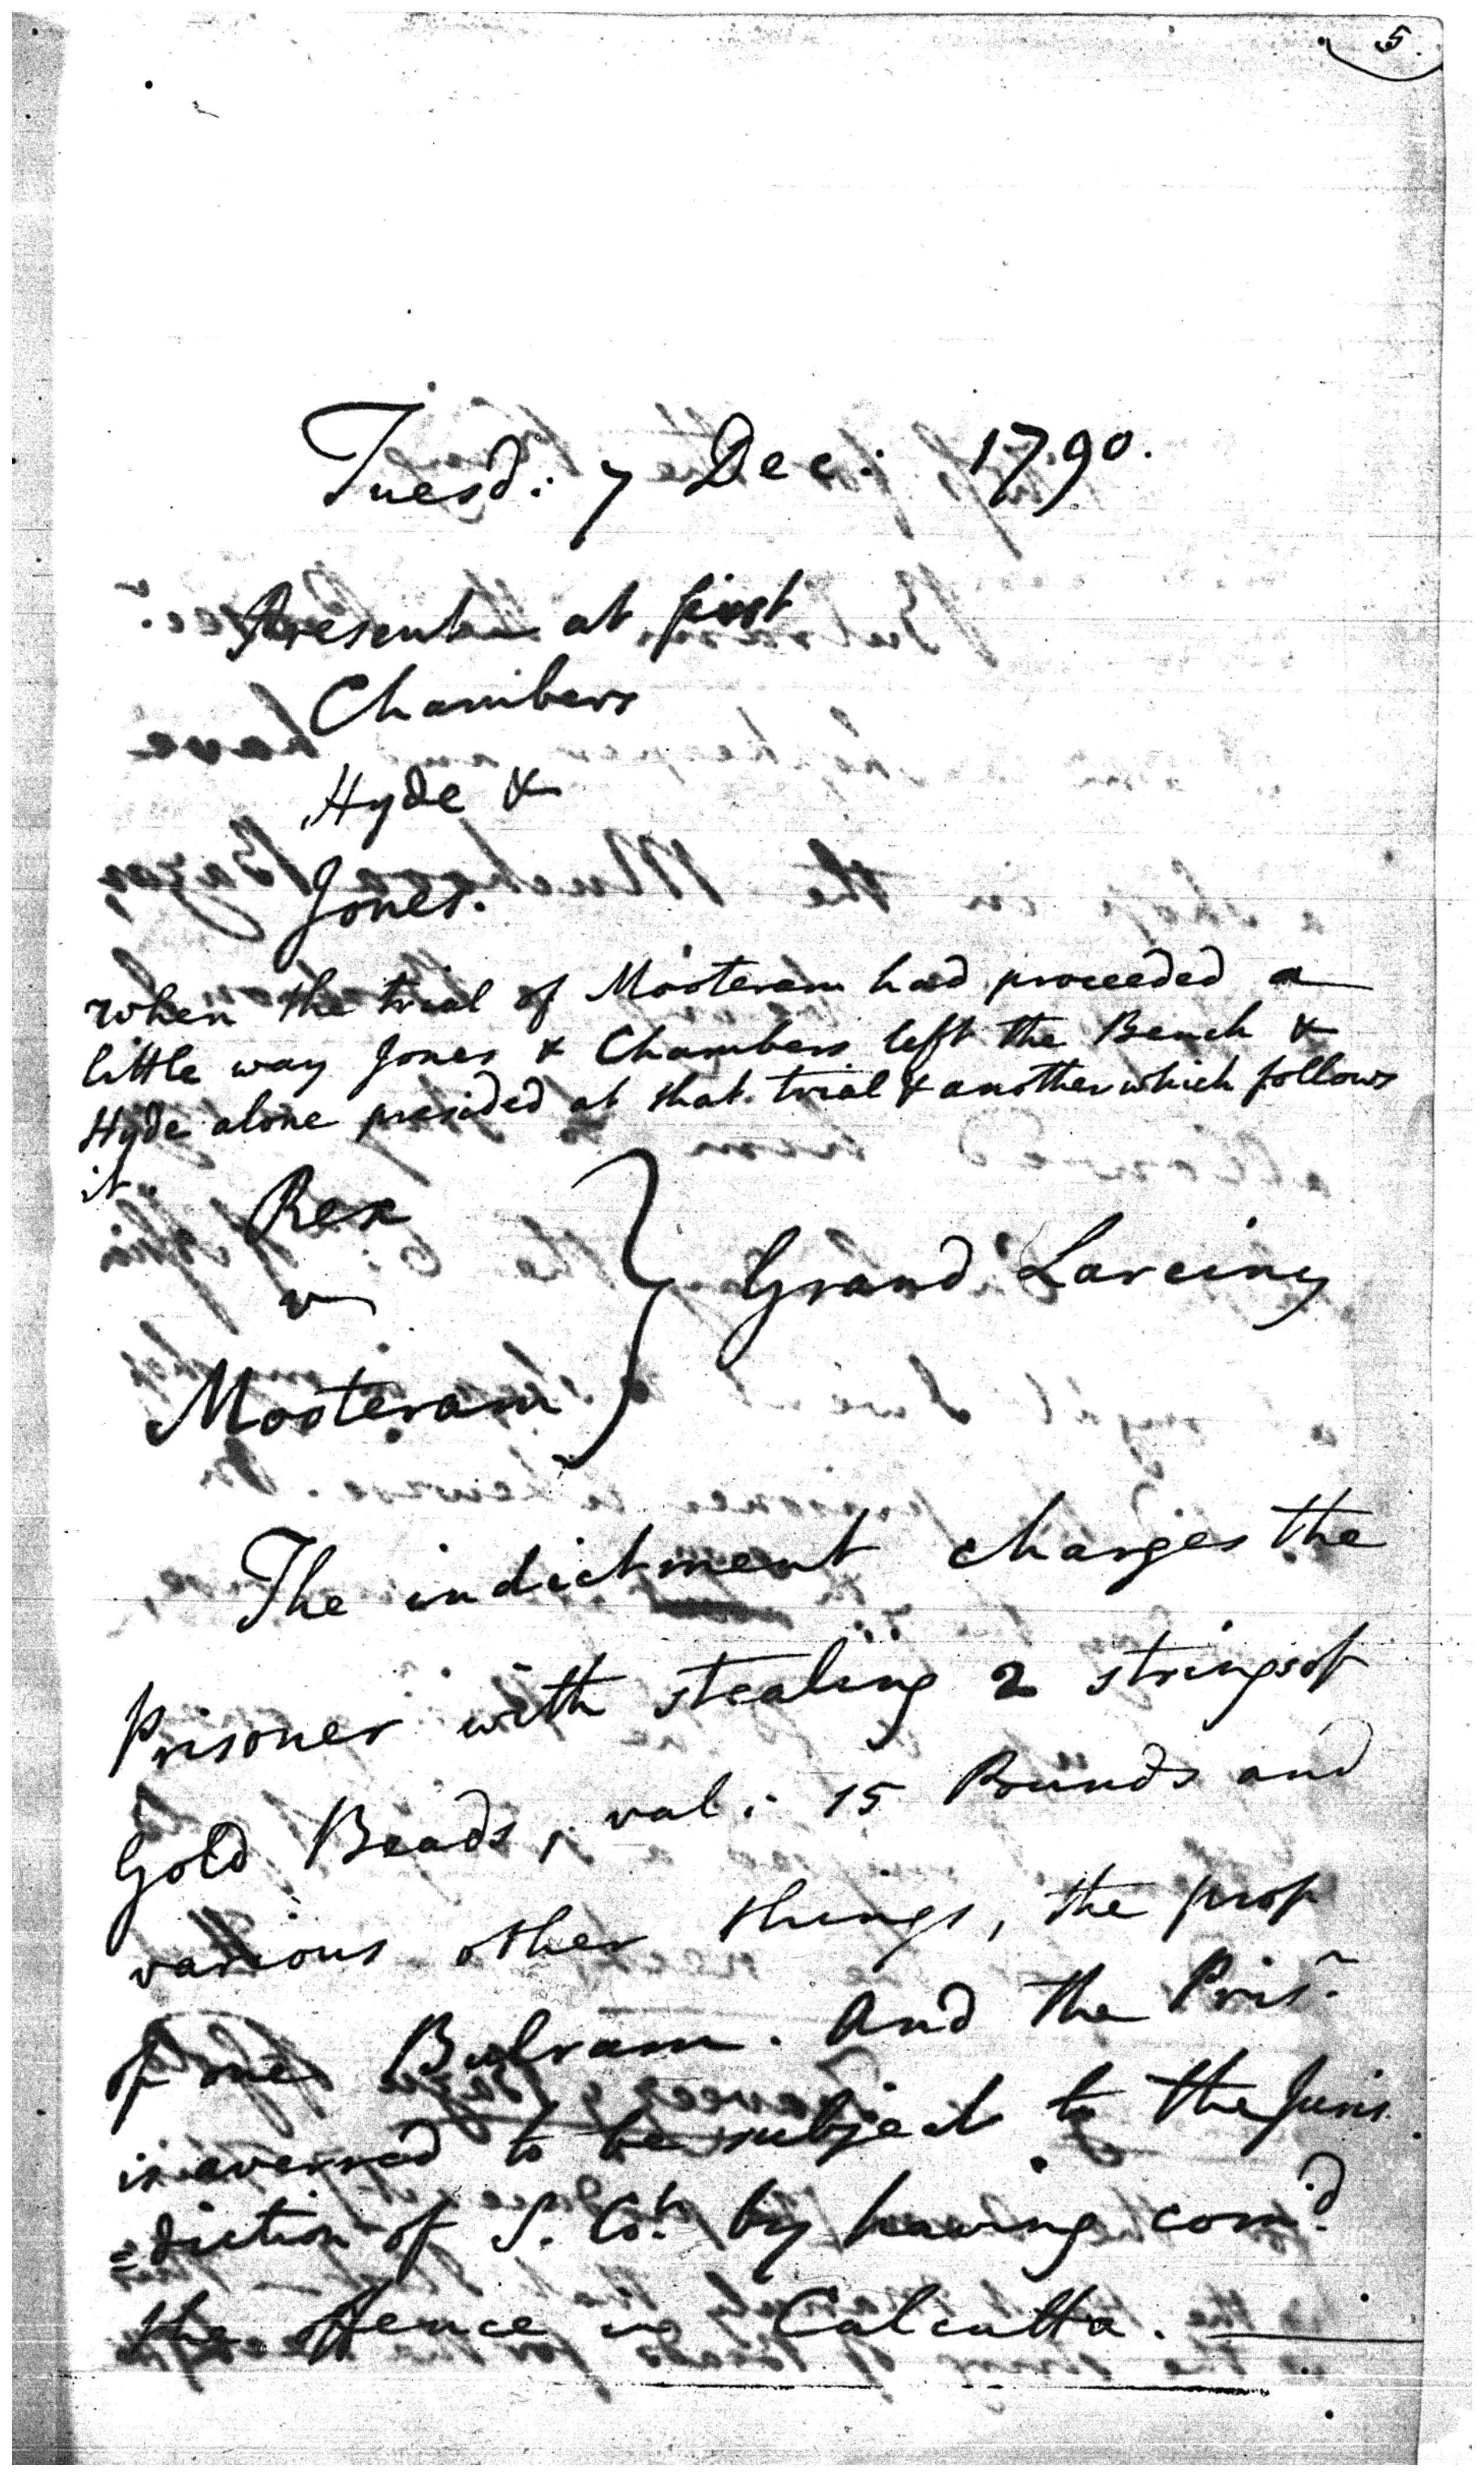 5.
Tuesd: 7 Dec: 1790.
Present at first
Chambers
Hyde &
Jones.
when the trial of Mooteram had proceeded a
little way Jones & Chambers left the Bench &
Hyde alone presided at that trial & another which follows
it
Rex
v
Mooteram } Grand Larciny
The indictment charges the
Prisoner with stealing 2 strings of
Gold Beads, val: 15 Pounds and
various other things, the prop
of one Bulram. And the Prisr
is averred to be subject to the Juris
=diction of S. Ct. by having comd.
the offence in Calcutta.